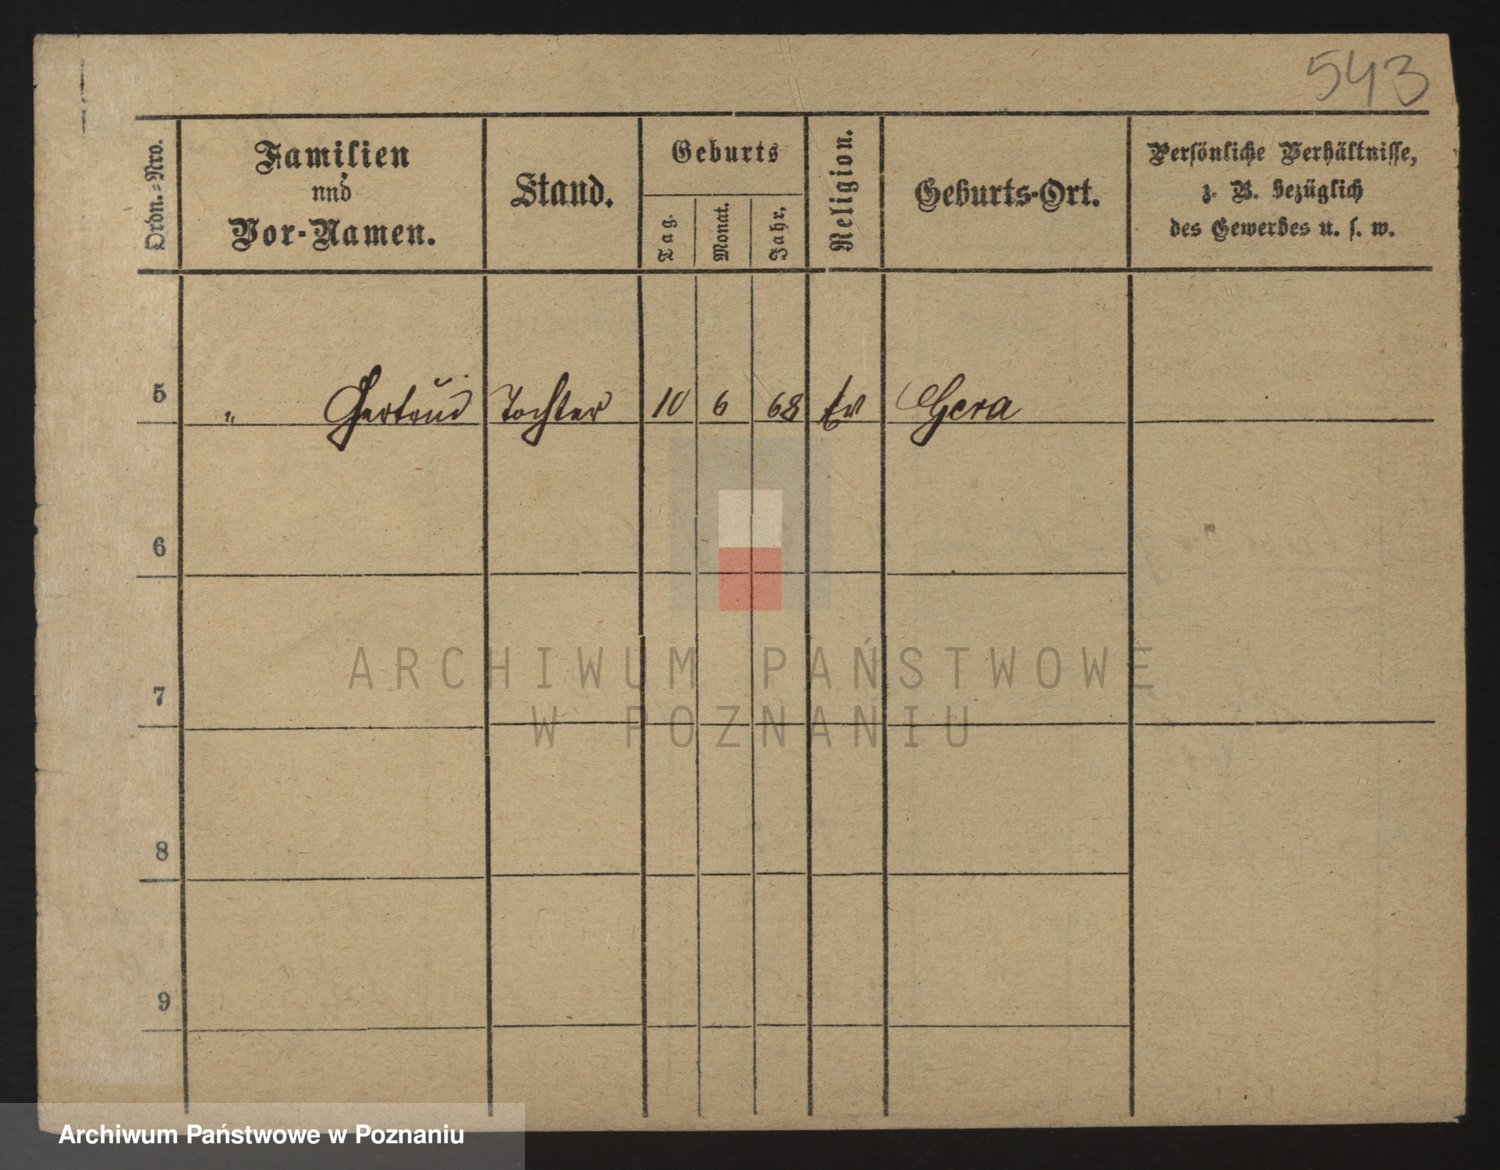 543
Ordn.=Nro.
Familien
und
Vor-Namen.
Stand.
Geburts
Tag.
Monat.
Jahr.
Religion.
Geburts-Ort.
Persönliche Verhältnisse,
z. B. bezüglich
des Gewerbes u. s. w.
5 " Gertrud Tochter 10 6 68 Ev Gera
6
7
8
9
ARCHIWUM PAŃSTWOWE
W POZNANIU
Archiwum Państwowe w Poznaniu